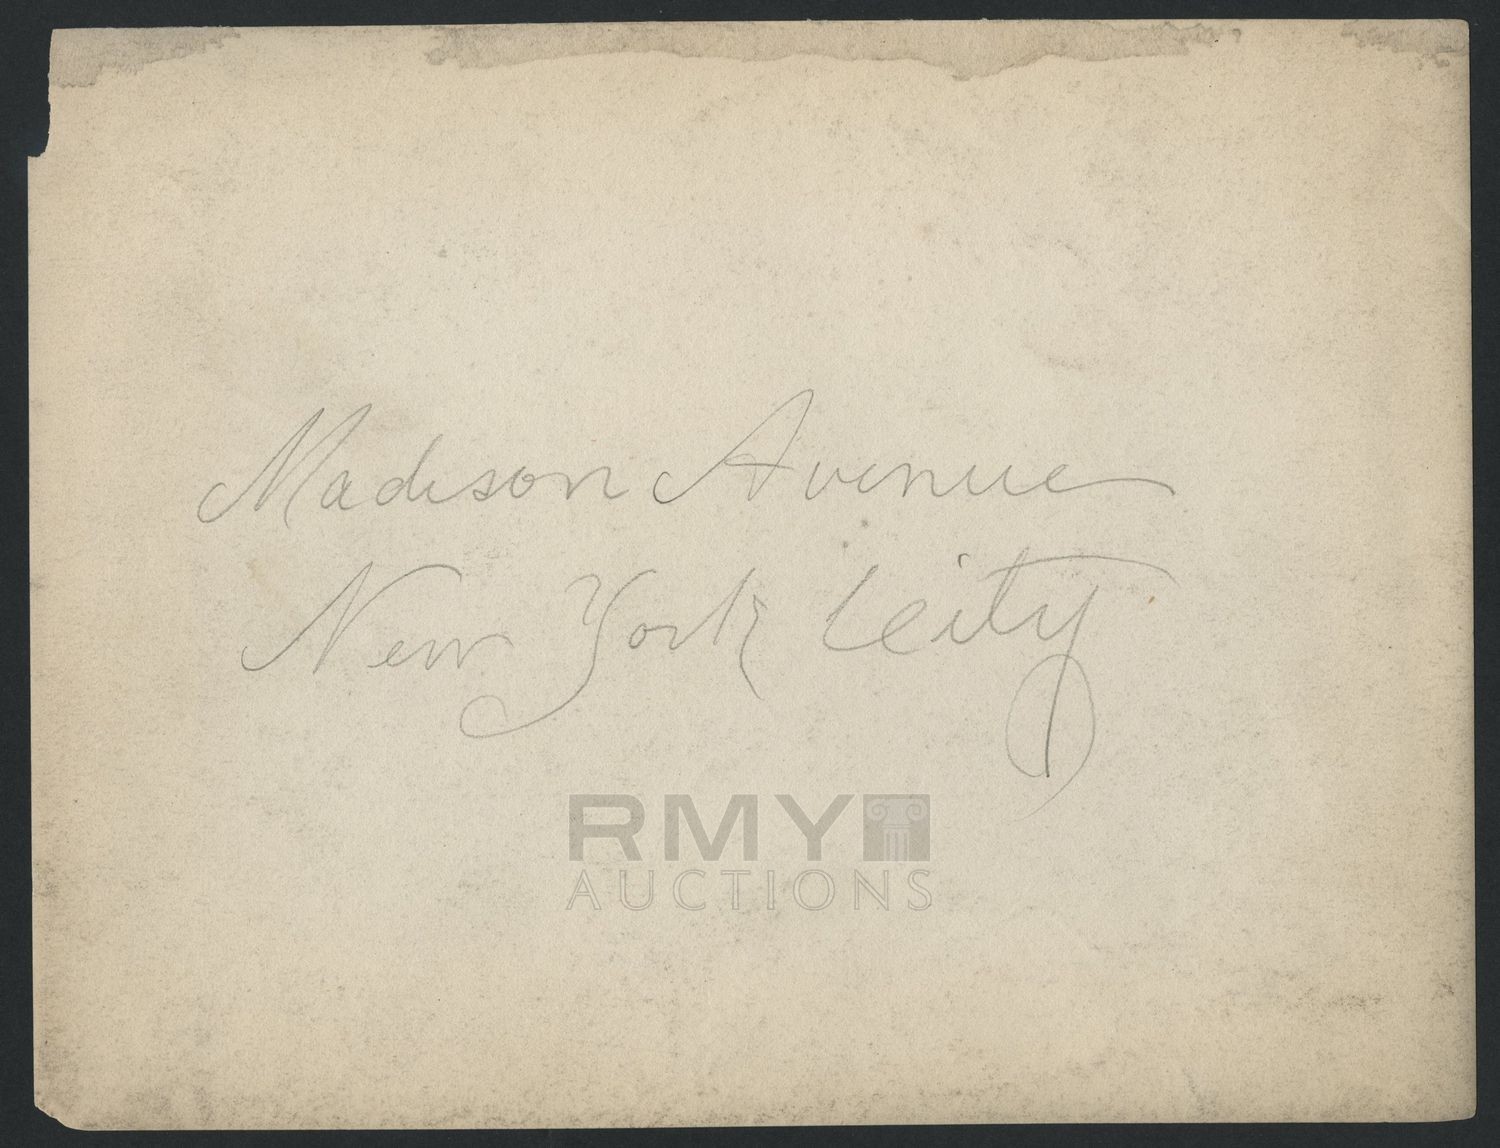 Madison Avenue
New York City
RMY
AUCTIONS